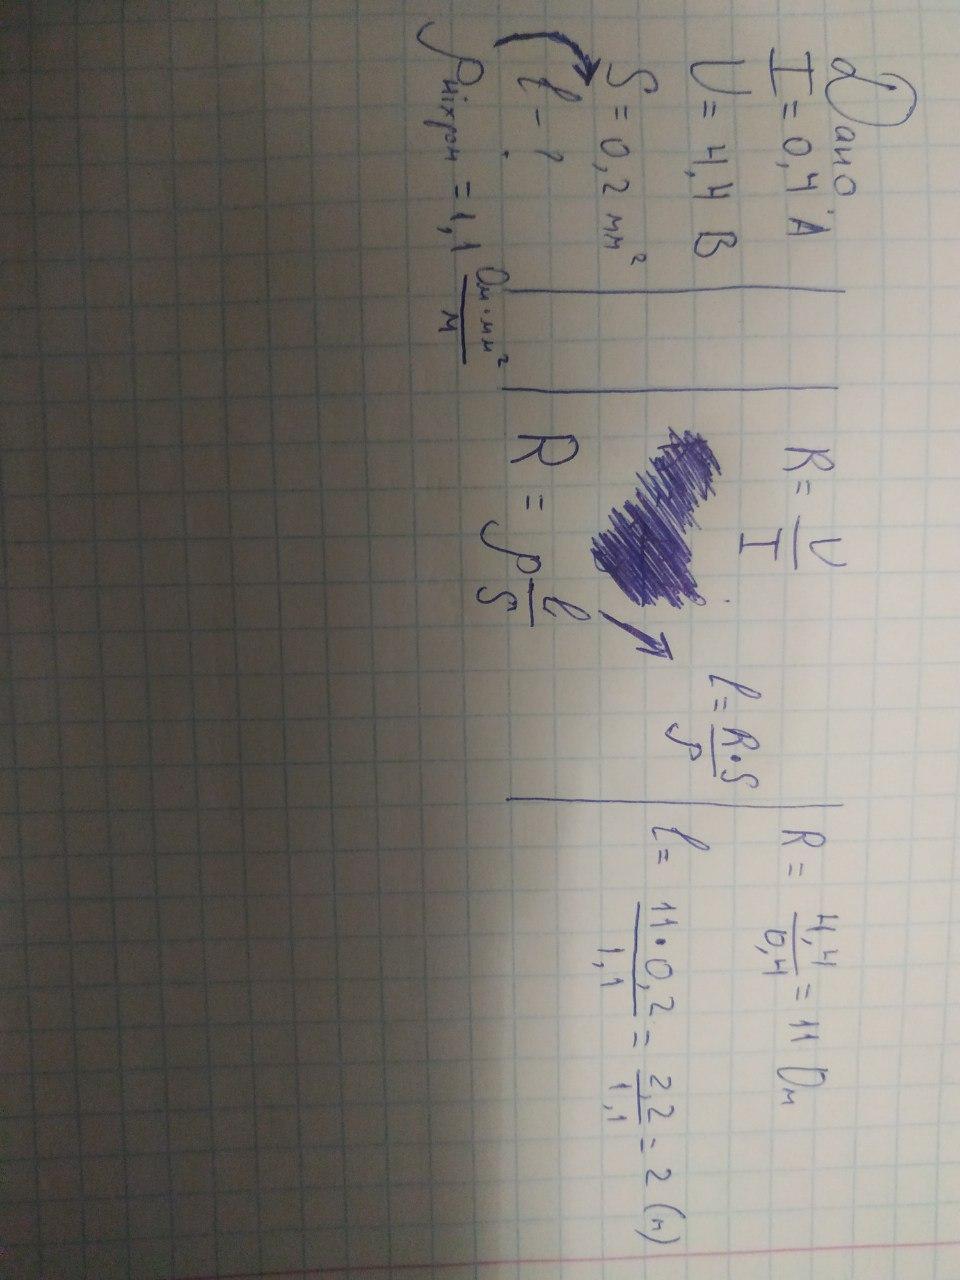 Дано
I = 0,4 А
U = 4,4 В
S = 0,2 мм²
l - ?
ρ ніхром = 1,1 Ом·мм²/м
R = U/I
R = ρ l/S
l = R·S/ρ
R = 4,4/0,4 = 11 Ом
l = 11·0,2/1,1 = 2,2/1,1 = 2 (м)